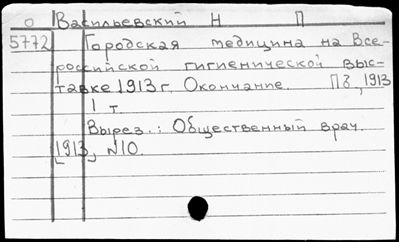 О Васильевский Н П
5772 Городская медицина на Все-
российской гигиенической выс-
тавке 1913 г. Окончание. ПБ, 1913
1 т
Вырез.: Общественный врач.
[1913], №10.